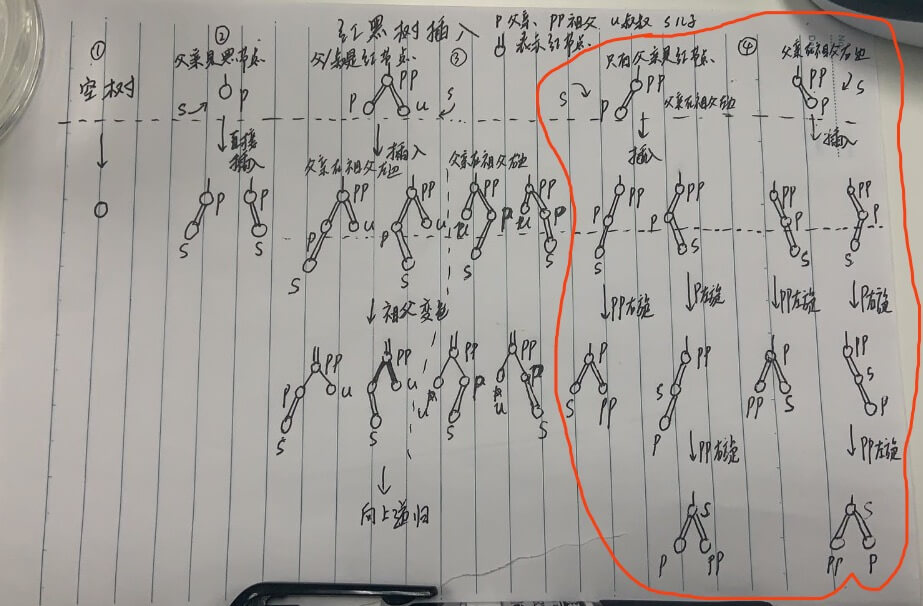 红黑树插入 P父亲、PP祖父 U叔叔 S儿子
表示红节点.
①
空树
②
父亲是黑节点
S P
直接
插入
P
S
P
S
父/叔是红节点. ③
PP
P U S
插入
父亲在祖父左边 父亲在祖父右边
PP PP PP PP
P U P U U P U P
S S S S
祖父变色
PP PP PP PP
P U U U P U P
S S S S
向上递归
④
只有父亲是红节点.
S PP
P 父亲在祖父左边
插入
父亲在祖父右边
PP S
P
插入
PP PP PP PP
P P P P
S S S S
PP右旋 P左旋 PP左旋 P右旋
P PP P PP
S PP S PP S S
P P
PP右旋 PP左旋
S S
P PP PP P